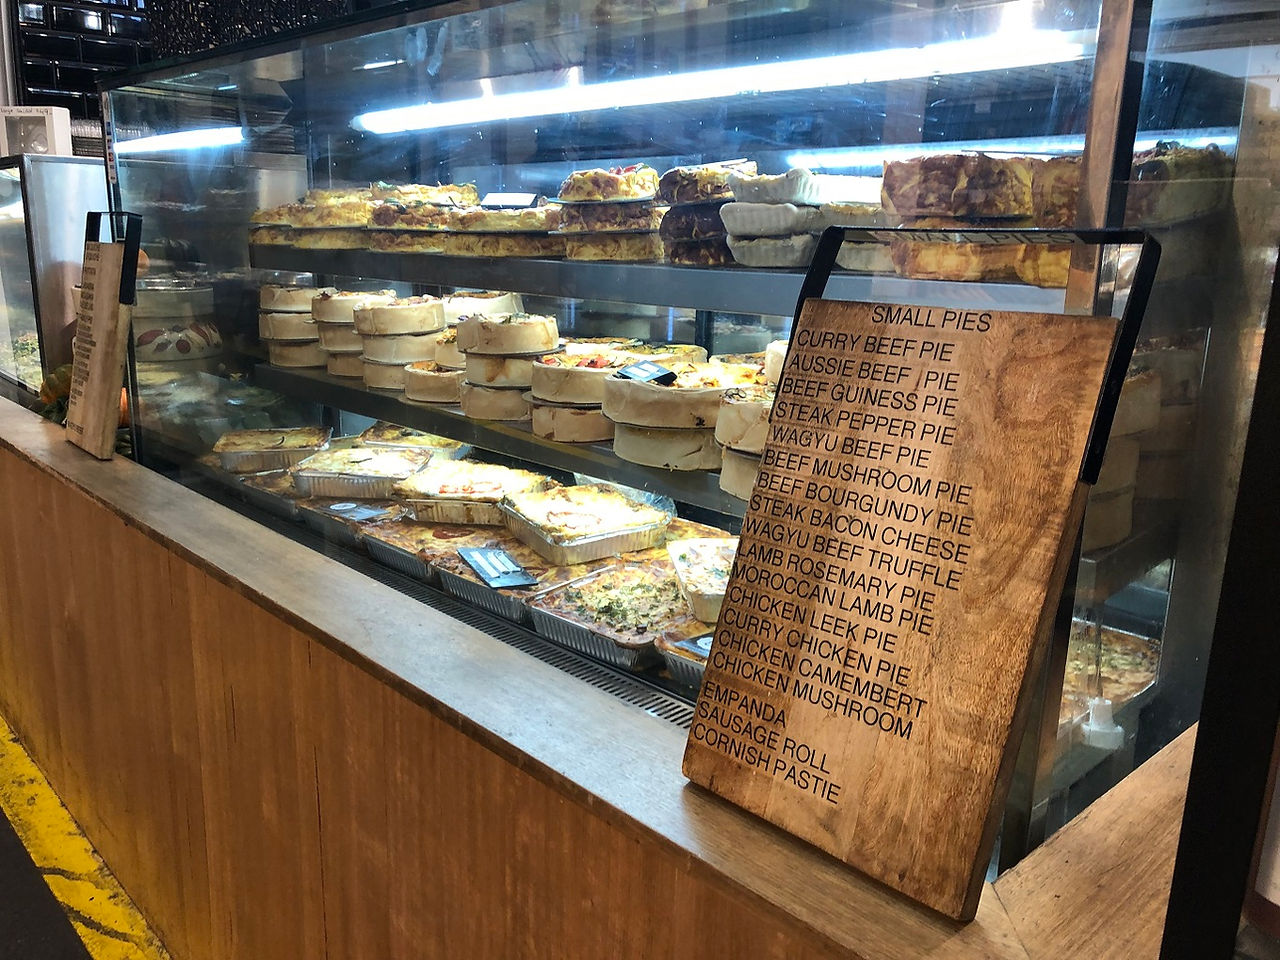 SMALL PIES
CURRY BEEF PIE
AUSSIE BEEF PIE
BEEF GUINESS PIE
STEAK PEPPER PIE
WAGYU BEEF PIE
BEEF MUSHROOM PIE
BEEF BOURGUNDY PIE
STEAK BACON CHEESE
WAGYU BEEF TRUFFLE
LAMB ROSEMARY PIE
MOROCCAN LAMB PIE
CHICKEN LEEK PIE
CURRY CHICKEN PIE
CHICKEN CAMEMBERT
CHICKEN MUSHROOM
EMPANDA
SAUSAGE ROLL
CORNISH PASTIE